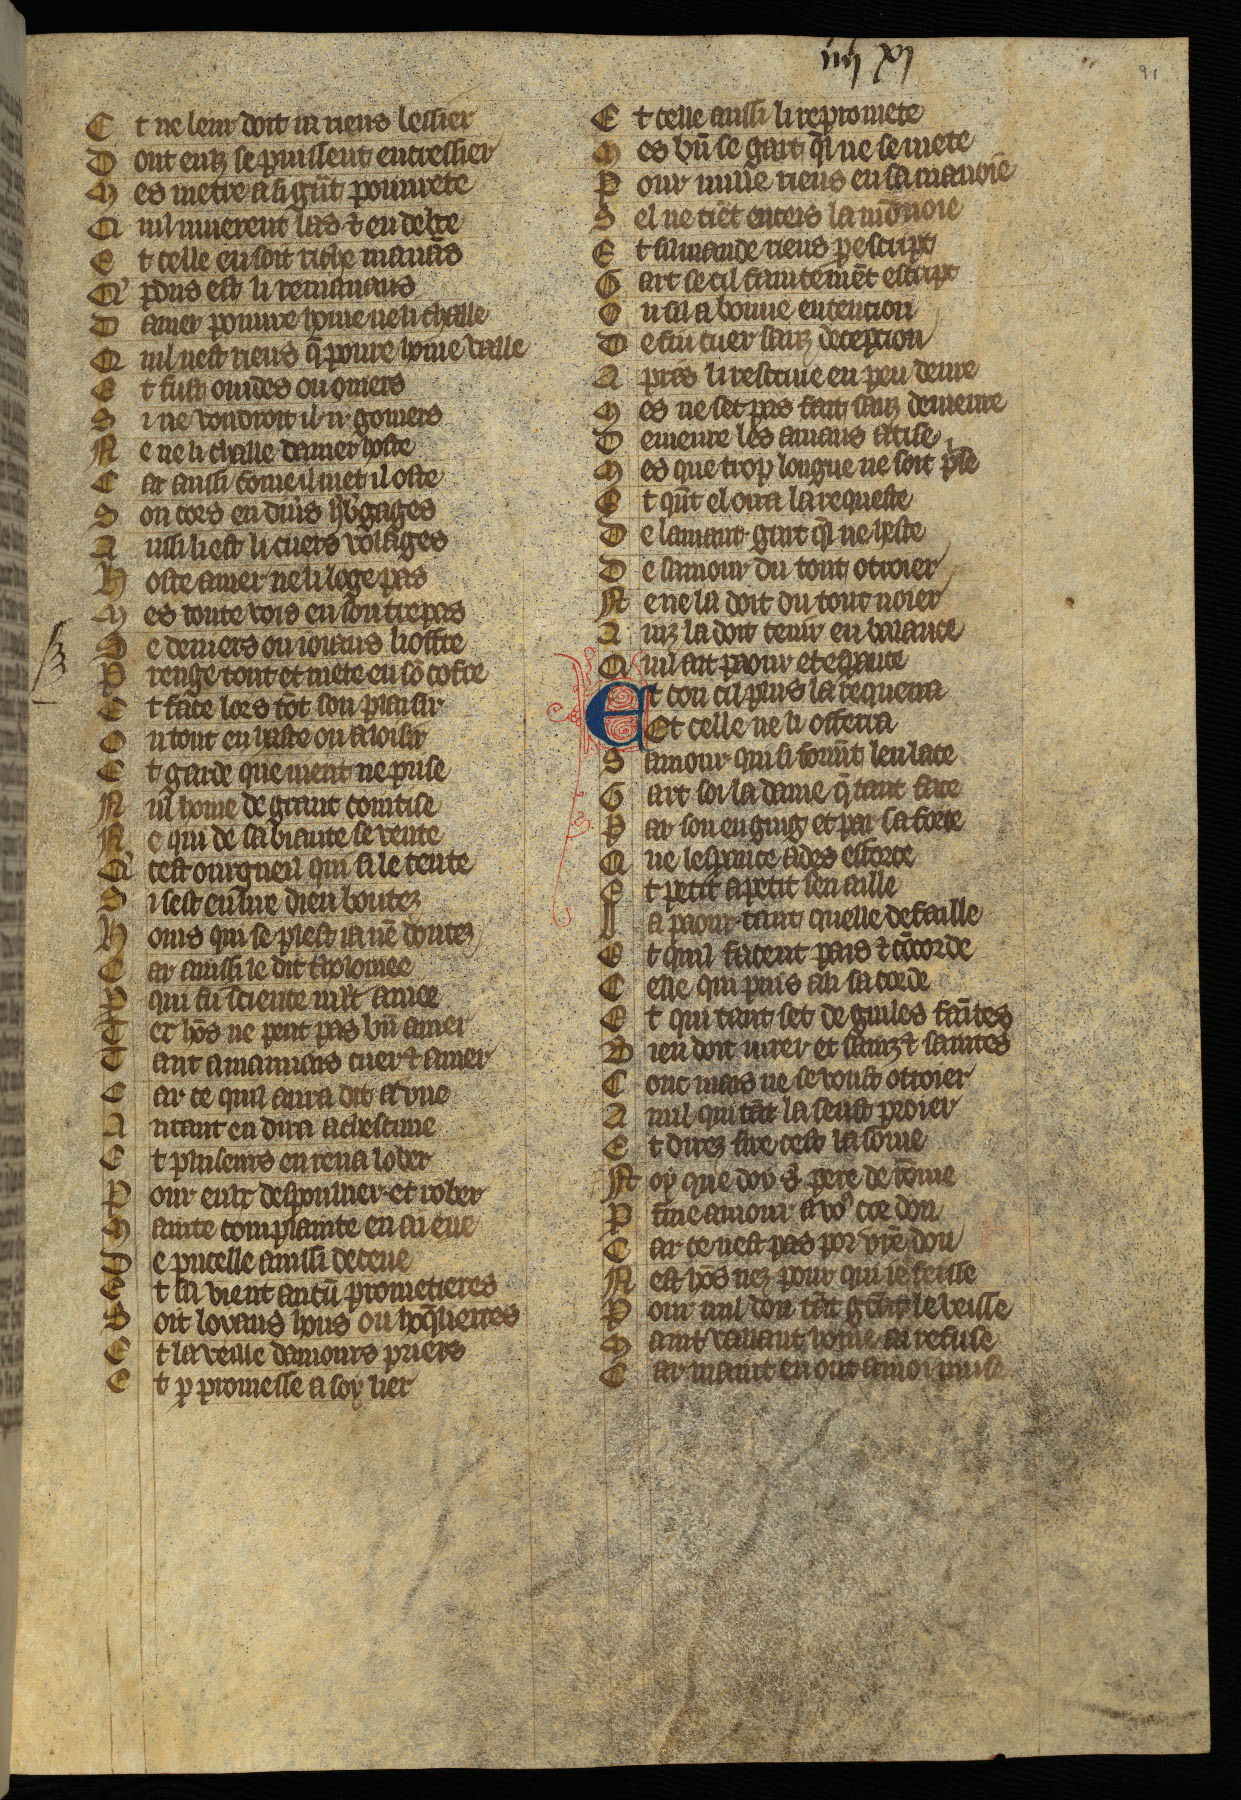 iiij xj
91
E t ne leur doit ia riens lessier
D ont eulz se puissent encressier
M es metre a si gñt pourete
Q uil muerent las ⁊ en debte
E t celle en soit riche manãs
Q' pdus est li remanans
D amer poure home ne li chaille
Q uil nest riens q̃ poure home vaille
E t fust ouides ou omers
S i ne vondroit il .ii. gomers
N e ne li chaille damer hoste
C ar aussi cõme il met il oste
S on cors en diũs hb̃gages
A ussi li est li cuers volages
H oste amer ne li loge pas
M es toute vois en son trepas
S e deniers ou ioiaus li offre
P renge tout et mete en sõ cofre
E t face lors tõt son plaisir
O u tout en haste ou a loisir
E t garde que nient ne prise
N ul home de grant cointise
N e qui de sa biaute se vente
Q' cest ourgueil qui si le tente
S i sest eu lire dieu boutez
H ons qui se plest ia nẽ doutez
C ar aussi le dit tholomee
P qui fu science mlt amee
T ex hõs ne peut pas bñ amer
T ant a mauuais cuer ⁊ amer
E ar ce quil aura dit a vne
A utant en dira a chescune
E t pluseurs en reua lober
P our eulz despouiller et rober
M ainte complainte en ai eue
D e pucelle ainssi deceue
E t sa vient aucũ prometierres
S oit loyaus hons ou hoq̃lierres
E t la veille damours priers
E t p promesse a soy lier
E t celle aussi li repromete
M es bñ se gart q̃l ne se mete
P our nulle riens en sa manoie
S el ne tiẽt encois la mõnoie
E t sil mande riens p escript
G art se cil faintemẽt escript
O u sil a bonne entencion
D e fin cuer sanz decepcion
A pres li rescriue en peu deure
M es ne set pas fait sanz demeure
D emeure les amans atise
M es que trop longue ne soit p̃se
E t qñt el orra la requeste
D e lamant gart q̃l ne heste
D e samour du tout otroier
N e ne la doit du tout noier
A inz la doit tenir en balance
Q uil ait paour et espance
E t con cil plus la requerra
Et celle ne li offerra
S amour qui si formẽt leu lace
G art soi la dame q̃ tant face
P ar son enging et par sa force
Q ue lesperance ades efforce
E t petit a petit sen aille
L a paour tant quelle defaille
E t quil facent pais ⁊ cõcorde
C elle qui puis ali sacorde
E t qui tant set de guiles faĩtes
D ieu doit iurer et sainz ⁊ saintes
C onc mais ne se voust otroier
A nul qui tãt la seust proier
E t direz sire cest la sõme
N oy que doy s. pere de rõme
P fine amour a vo' ce don
C ar ce nest pas por vrẽ don
N est hõs nez pour qui ie feisse
P our nul don tãt grãt le veisse
M aint vaillant home ai refuse
C ar maint en ont a moi muse